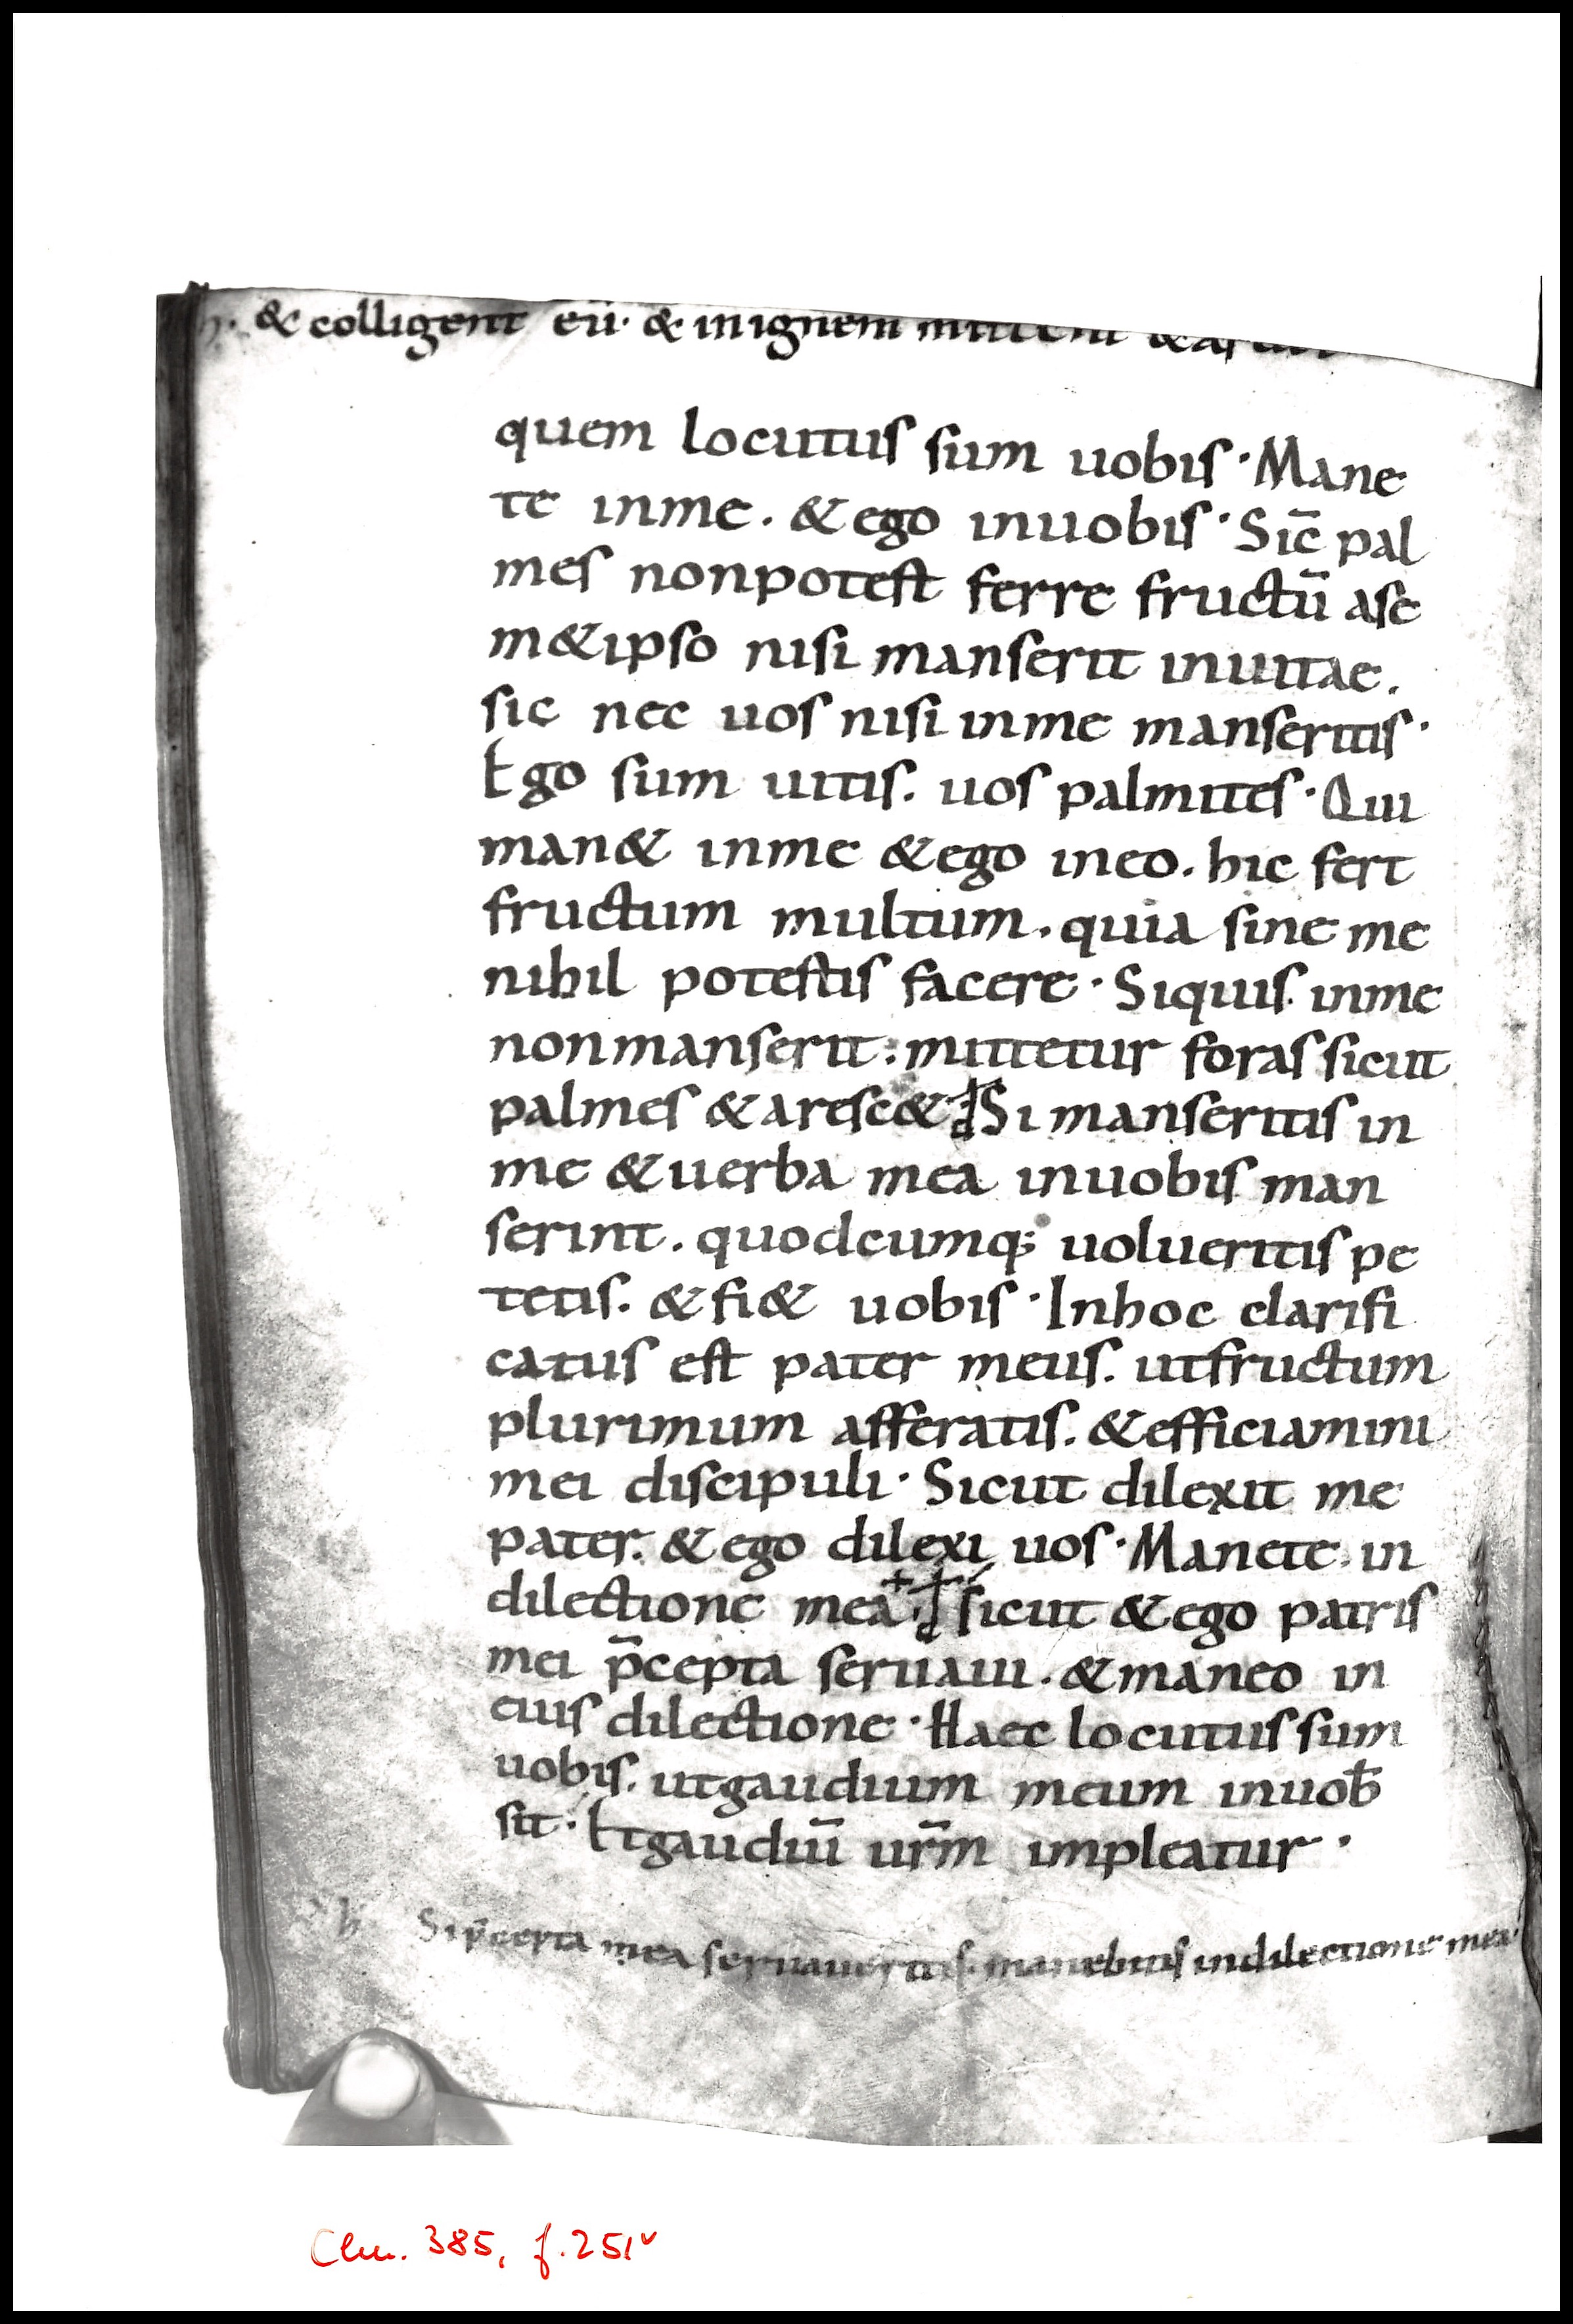 h. & colligent eū. & inignem mittent &ard
quem locutus sum uobis. Mane
te inme. & ego inuobis. Sic̄ pal
mes nonpotest ferre fructū ase
m&ipso nisi manserit inuitae.
sic nec uos nisi inme manseritis.
Ego sum uitis. uos palmites. Qui
man& inme & ego ineo. hic fert
fructum multum. quia sine me
nihil potestis facere. Siquis inme
nonmanserit: mittetur foras sicut
palmes & aresc&. Si manseritis in
me & uerba mea inuobis man
serint. quodcumq; uolueritis pe
tetis. & fi& uobis. Inhoc clarifi
catus est pater meus. utfructum
plurimum afferatis. & efficiamini
mei discipuli. Sicut dilexit me
pater. & ego dilexi uos. Manete in
dilectione mea. sicut & ego patris
mei p̄cepta seruaui. & maneo in
eius dilectione. Haec locutus sum
uobis. utgaudium meum inuob̄
sit. Etgaudiū ur̄m impleatur.
h Si p̄cepta mea seruaueritis. manebitis indilectione mea.
Clm. 385, f. 251v